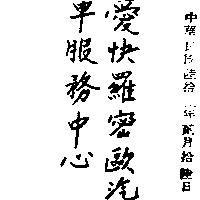 中華民國陸拾一年貳月拾陸日
愛快羅密歐汽
車服務中心